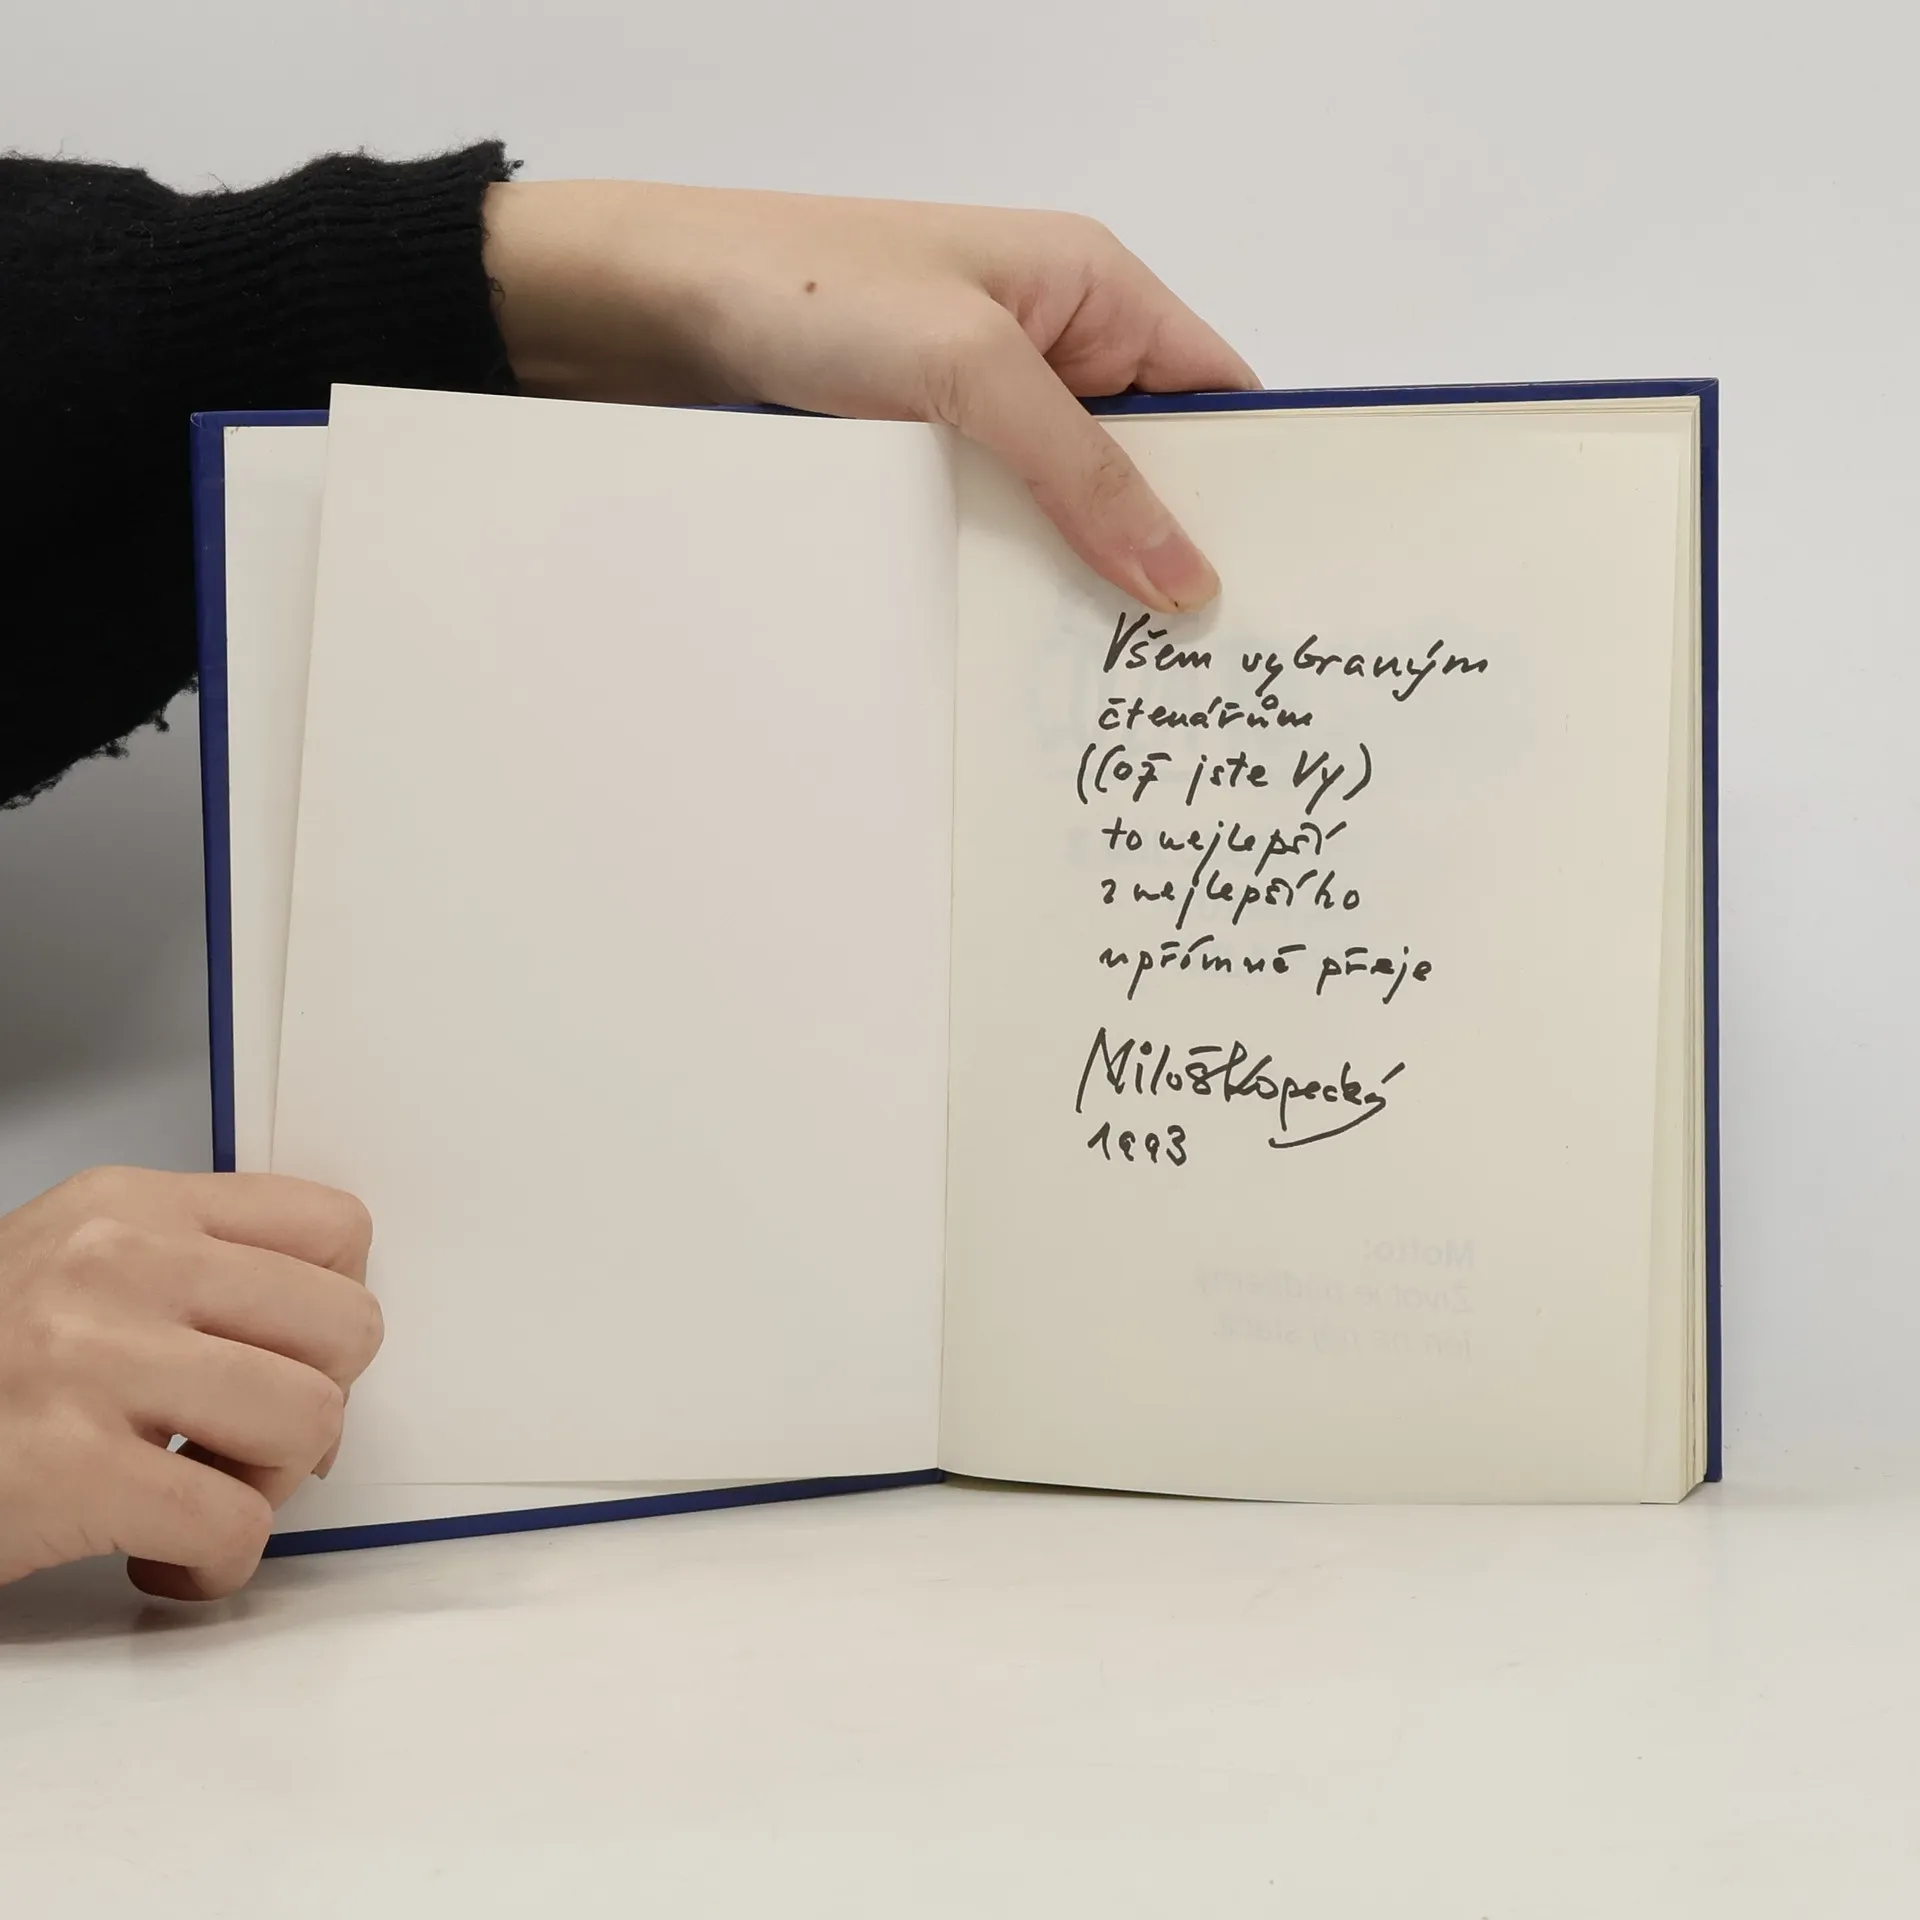 Všem vybraným
čtenářům
(Což jste Vy)
to nejlepší
z nejlepšího
upřímně přeje
Miloš Kopecký
1993
Motto: